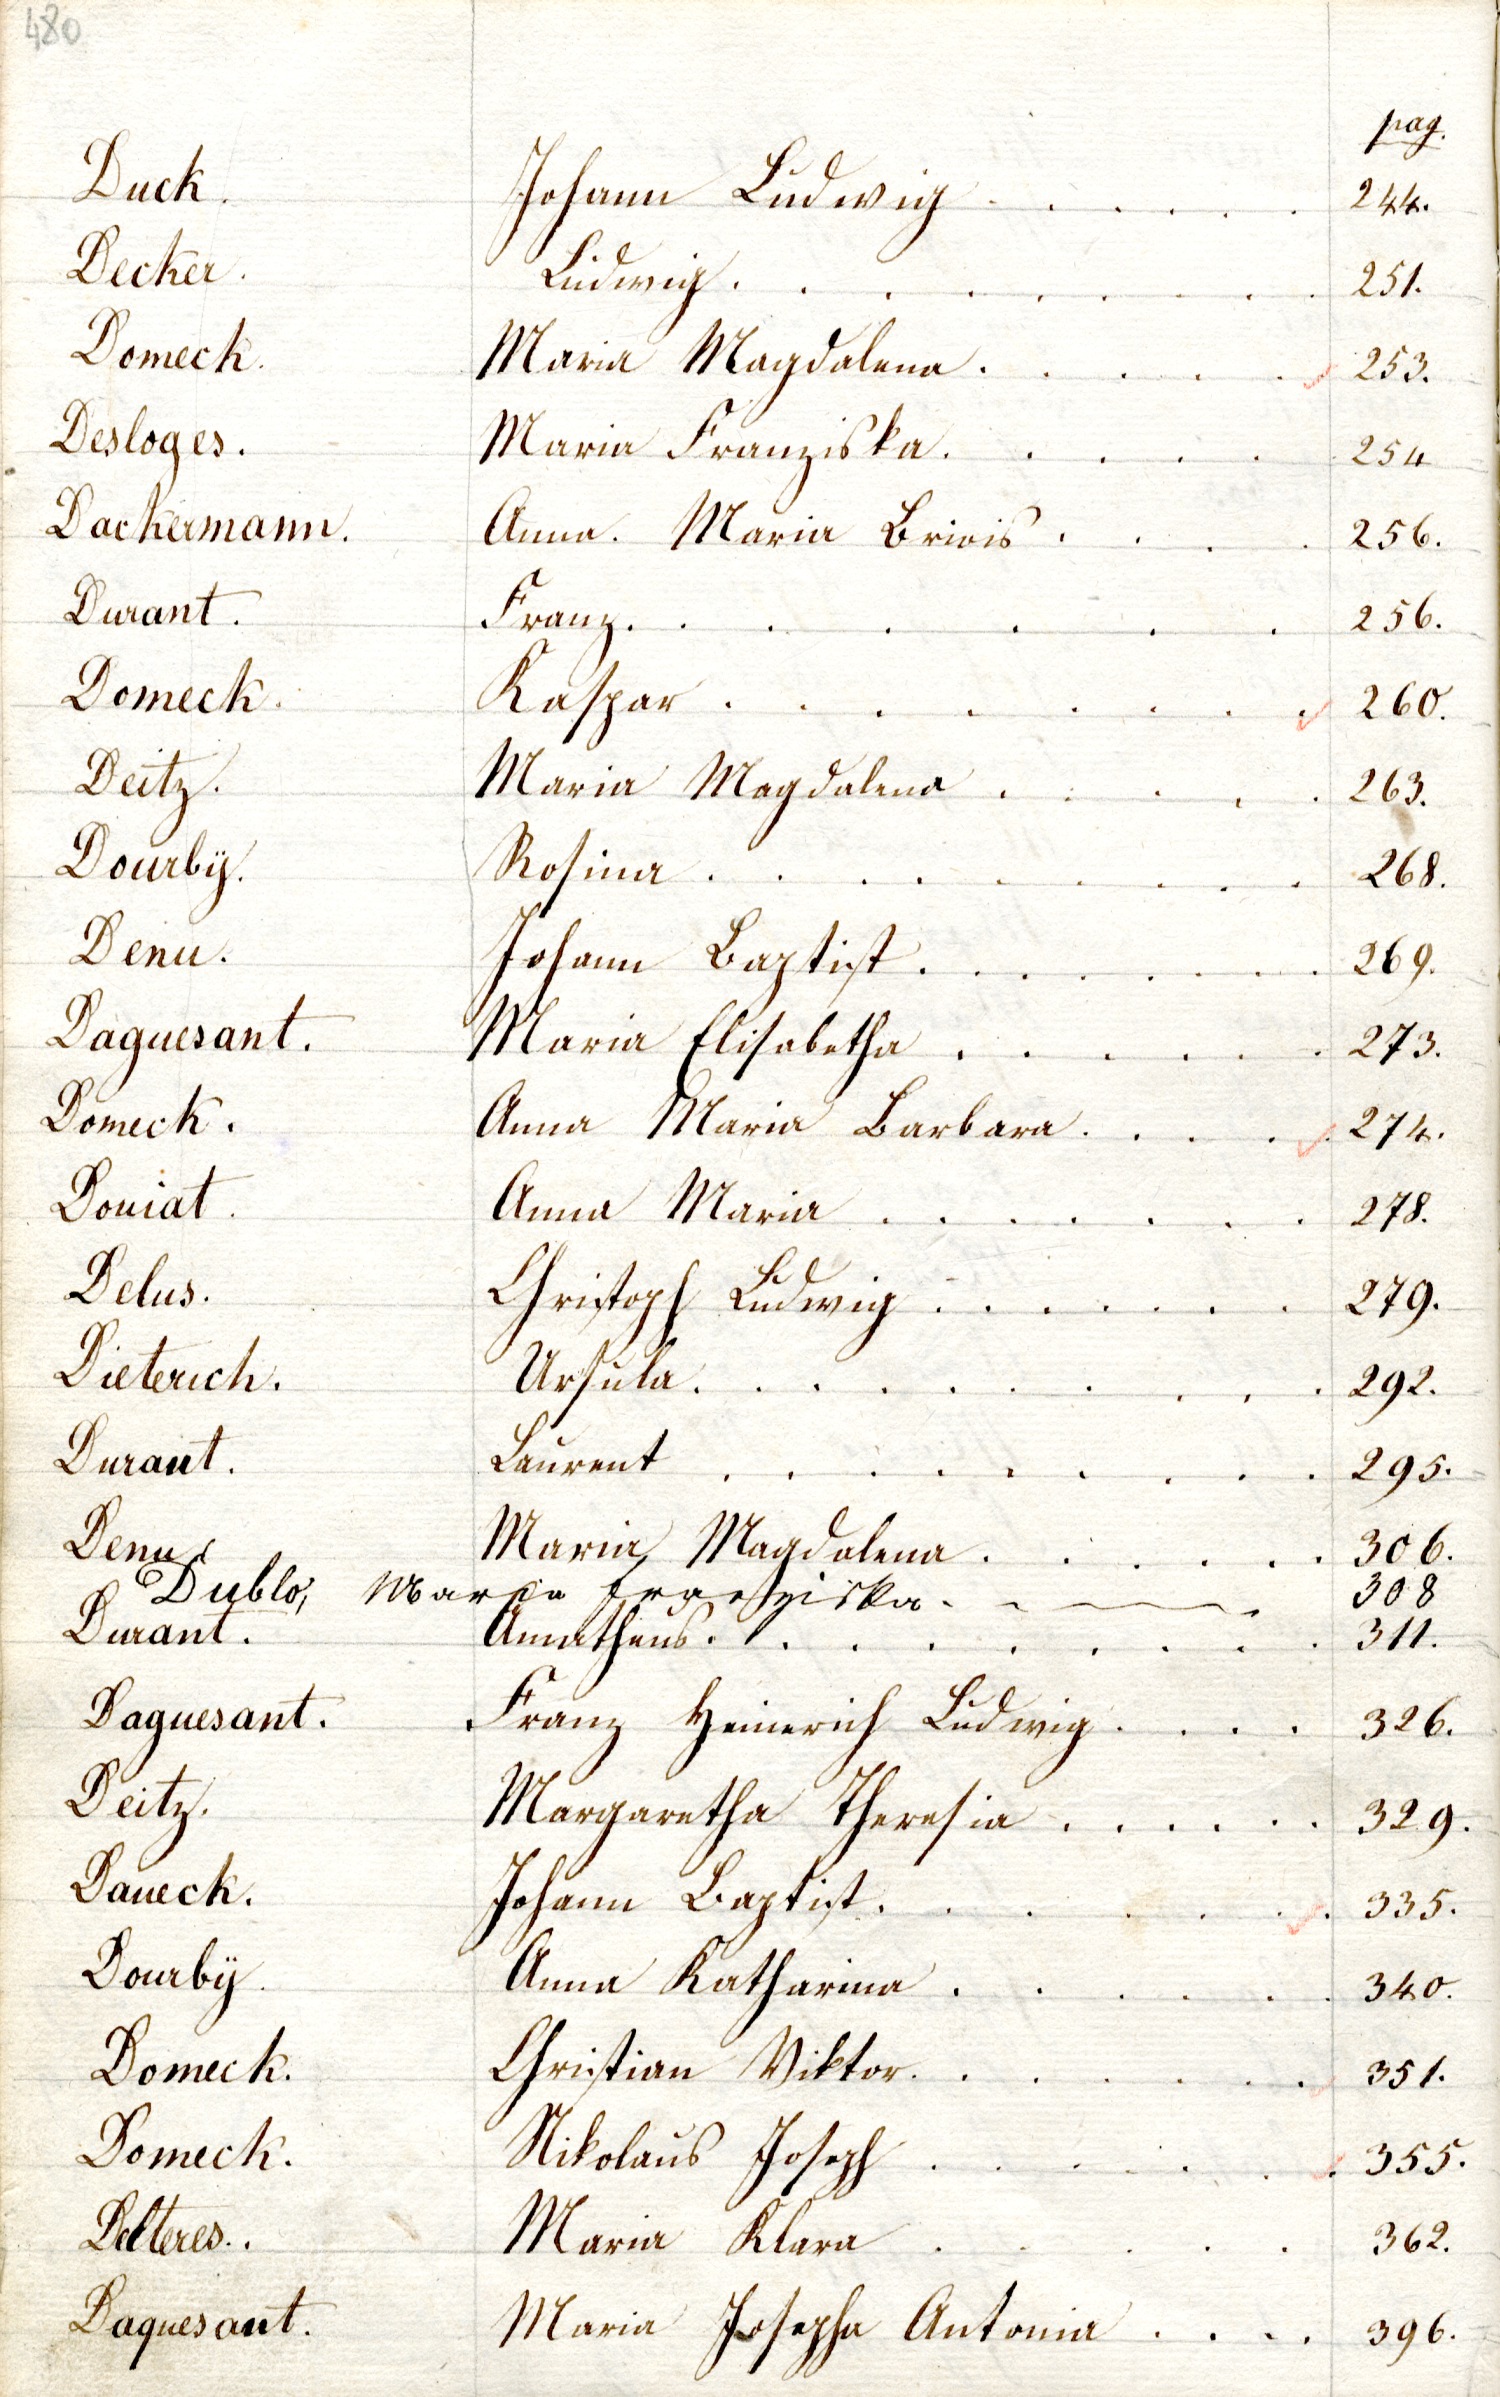 480
pag.
Duck. Johann Ludwig . . . . . 244.
Decker. Ludwig. . . . . . . . 251.
Domeck. Maria Magdalena. . . . . 253.
Desloges. Maria Franziska. . . . . 254
Dackermann. Anna. Maria Briois . . . . 256.
Durant. Franz. . . . . . . 256.
Domeck. Kaspar . . . . . . . . 260.
Deitz. Maria Magdalena . . . . . 263.
Dourbÿ. Rosina . . . . . . . . 268.
Denu. Johann Baptist. . . . . . . 269.
Daguesant. Maria Elisabetha . . . . . . 273.
Domeck. Anna Maria Barbara. . . . . 274.
Doniat. Anna Maria . . . . . . . 278.
Delus. Christoph Ludwig . . . . . . 279.
Dieterich. Ursula. . . . . . . . . 292.
Durant. Laurent . . . . . . . . 295.
Denu Maria Magdalena. . . . . . 306.
Dublo, Maria Franziska. 308
Durant. Amatheus. . . . . . . . 311.
Daguesant. Franz Heinerich Ludwig. . . . 326.
Deitz. Margaretha Theresia . . . . . . 329.
Daueck. Johann Baptist. . . . . . . 335.
Dourbÿ. Anna Katharina . . . . . . 340.
Domeck. Christian Viktor. . . . . . . 351.
Domeck. Nikolaus Joseph . . . . . . 355.
Delteres.. Maria Klara . . . . . 362.
Daguesant. Maria Josepha Antonia . . . . 396.